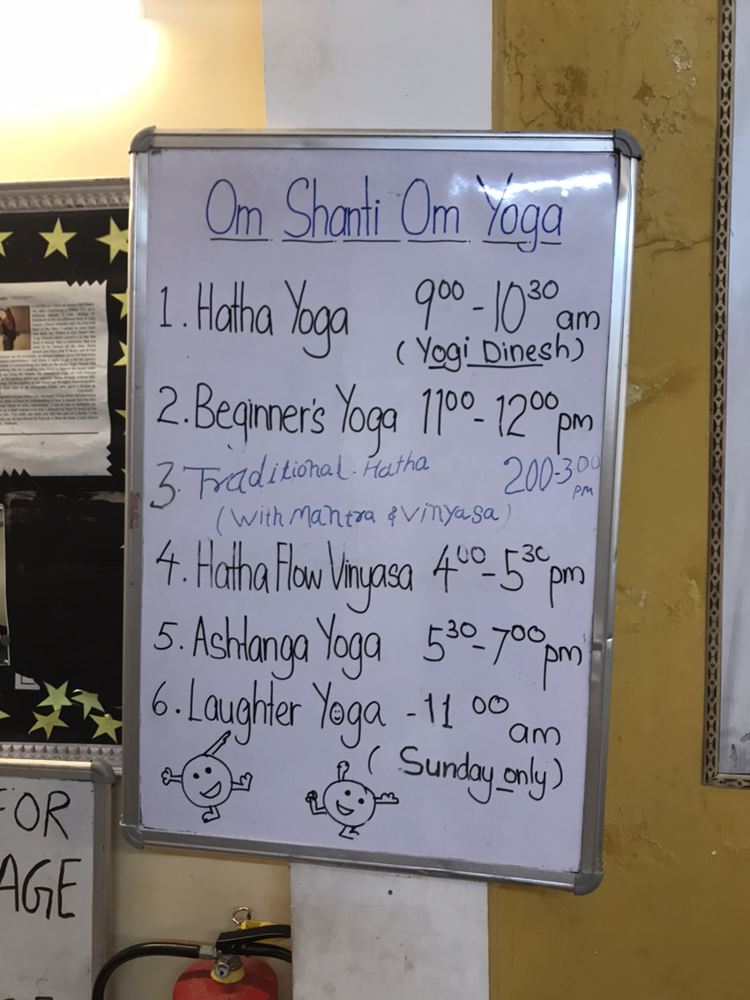 Om Shanti Om Yoga
1. Hatha Yoga 9⁰⁰ - 10³⁰ am
(Yogi Dinesh)
2. Beginner's Yoga 11⁰⁰ - 12⁰⁰ pm
3. Traditional Hatha 200-3⁰⁰ pm
(with mantra & vinyasa)
4. Hatha Flow Vinyasa 4⁰⁰ - 5³⁰ pm
5. Ashtanga Yoga 5³⁰ - 7⁰⁰ pm
6. Laughter Yoga - 11 ⁰⁰ am
(Sunday only)
FOR
AGE